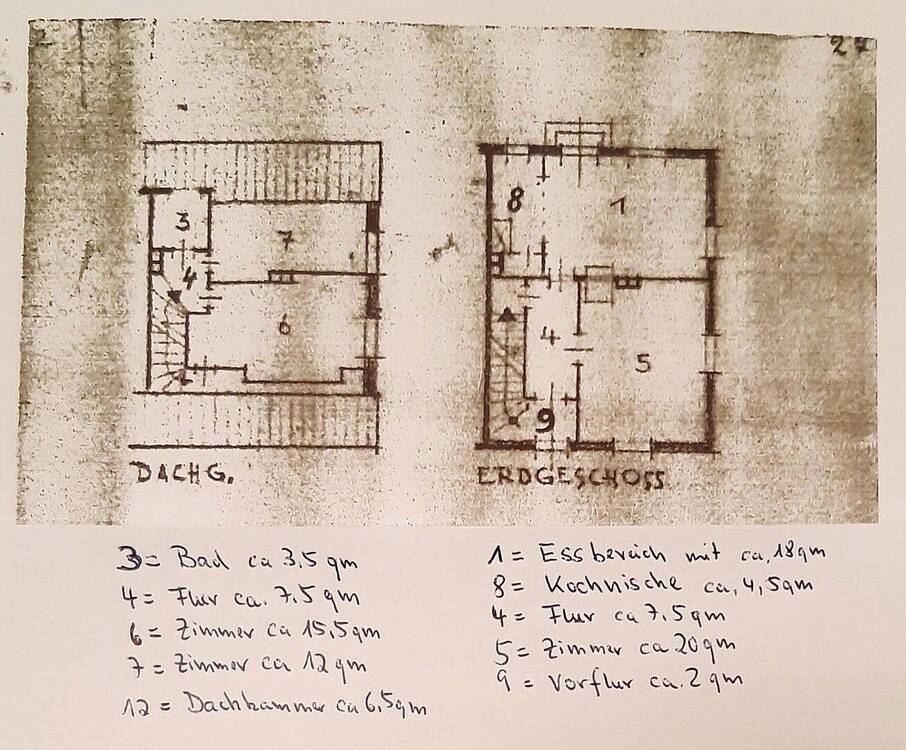 27
3
7
4
6
8
1
4
5
9
DACHG.
ERDGESCHOSS
3= Bad ca 3,5 qm
4= Flur ca. 7,5 qm
6= Zimmer ca 15,5qm
7= Zimmer ca 12 qm
12= Dachkammer ca 6,5qm
1= Essbereich mit ca, 18qm
8= Kochnische ca, 4,5qm
4= Flur ca 7,5 qm
5= Zimmer ca 20qm
9= Vorflur ca. 2 qm